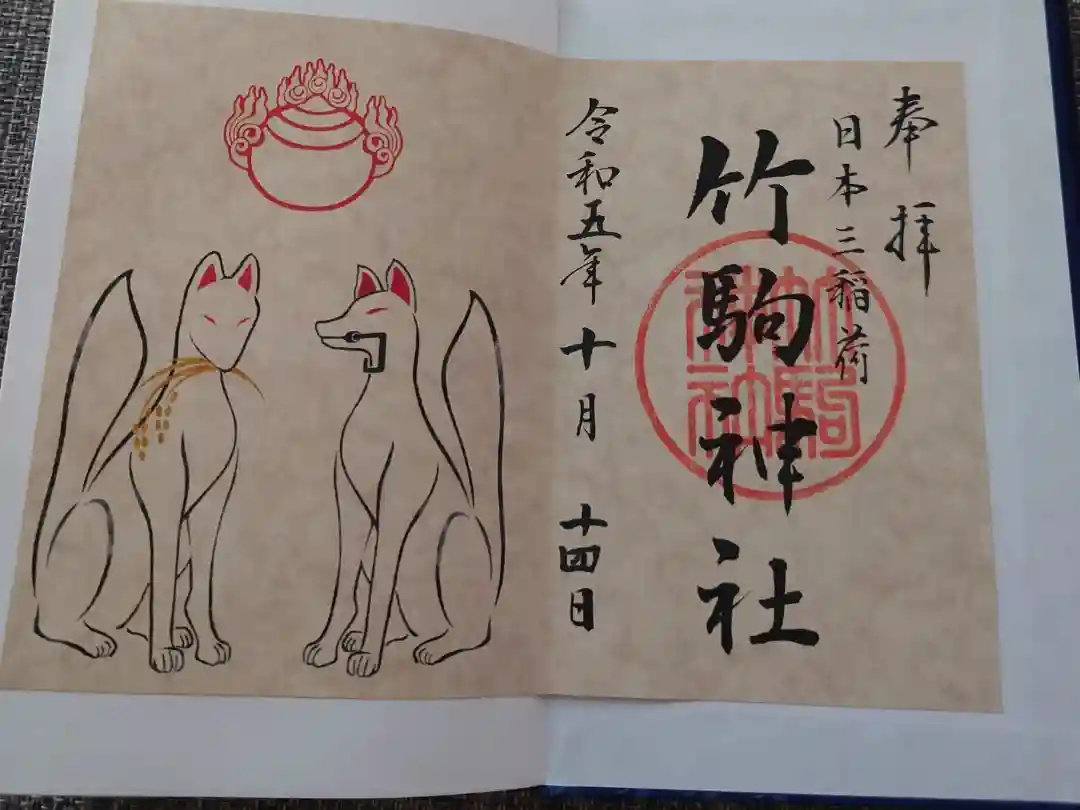 奉拝
日本三稲荷
竹駒神社
竹駒神社
令和五年 十月 十四日